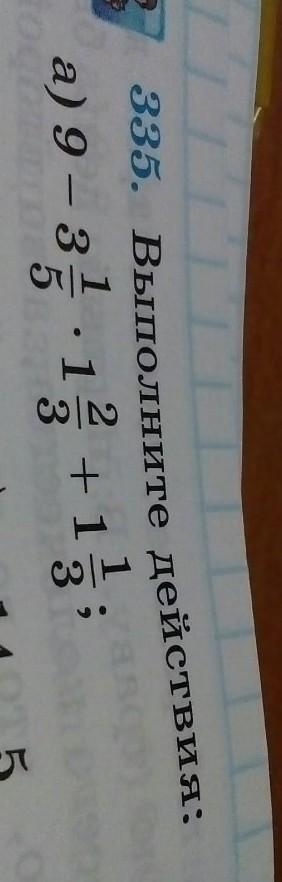 335. Выполните действия:
а) 9 − 3 1/5 · 1 2/3 + 1 1/3;